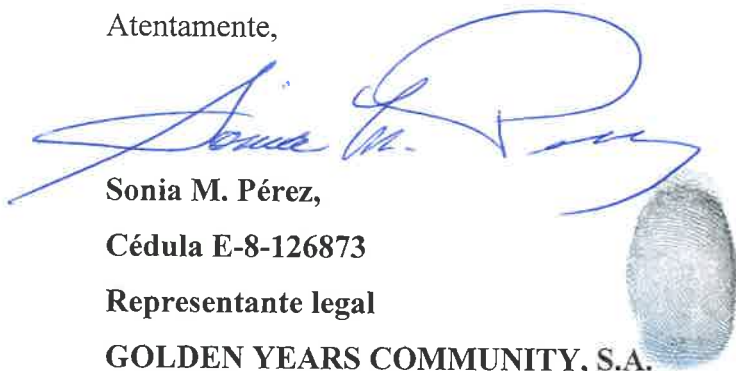 Atentamente,
Sonia M. Pérez
Sonia M. Pérez,
Cédula E-8-126873
Representante legal
GOLDEN YEARS COMMUNITY, S.A.